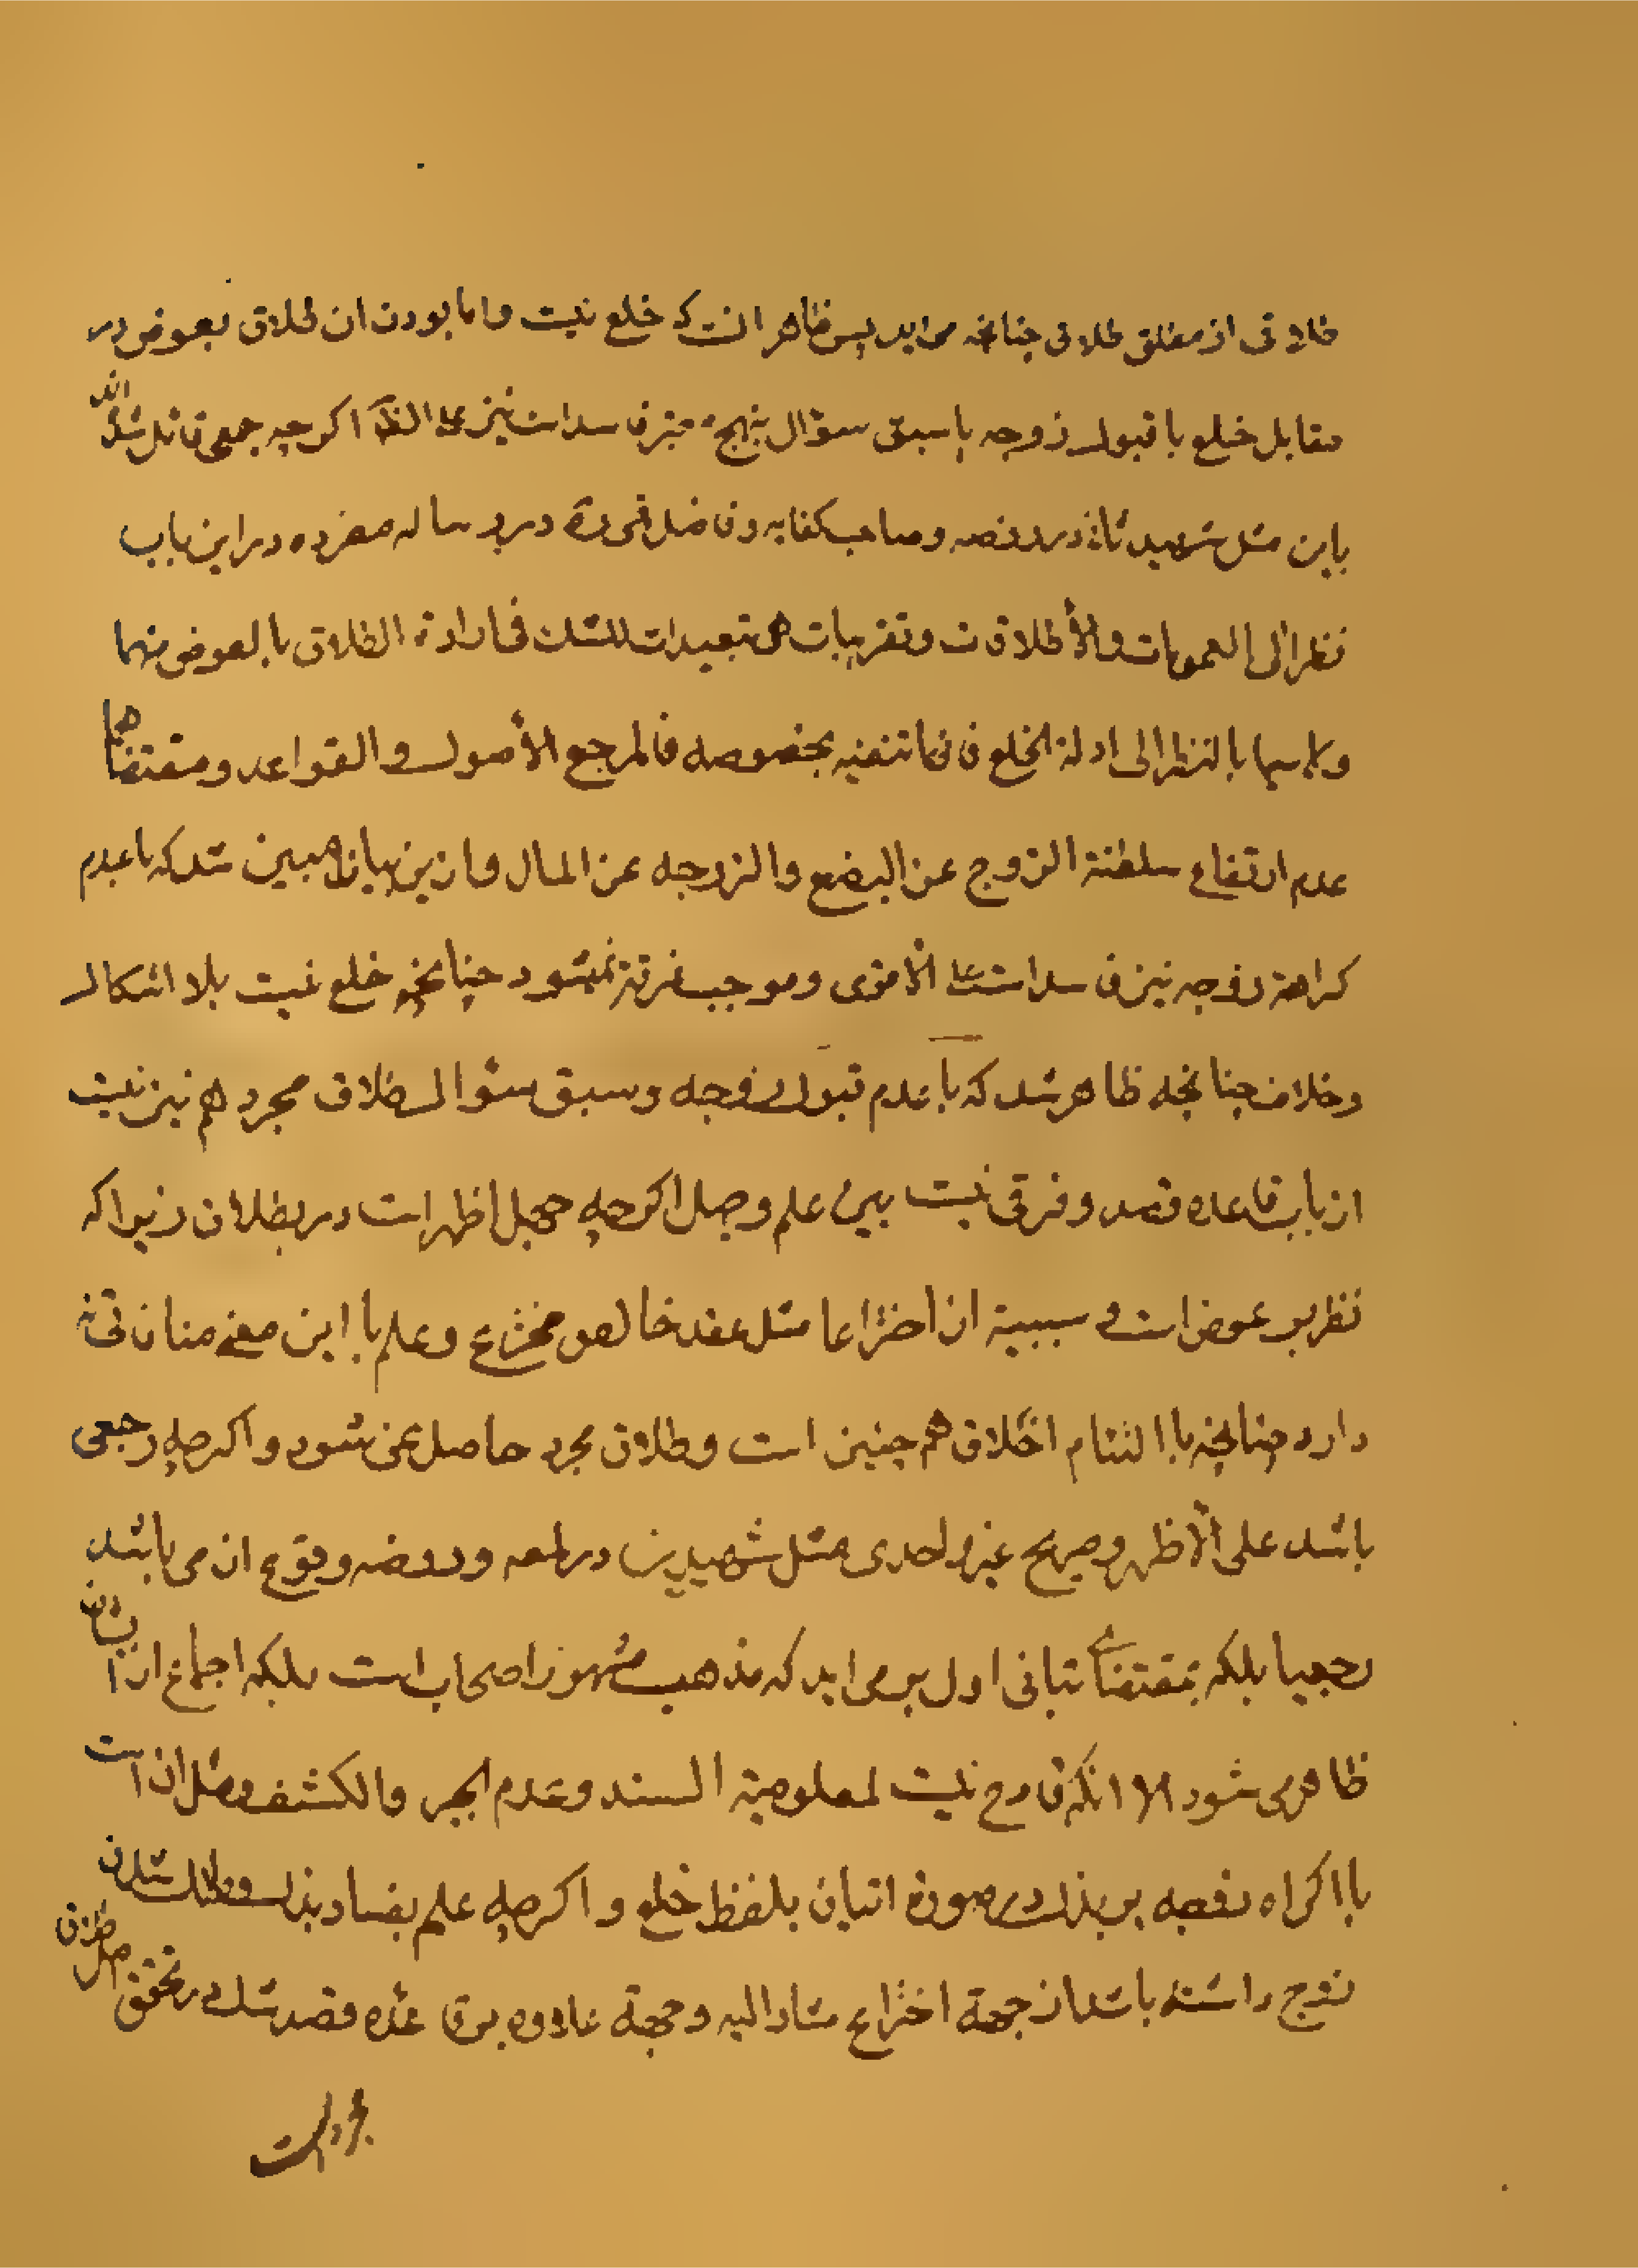 طلاقی از مطلق طلاق چنانچه می اید پس ظاهر انست که خلع نیست و اما بودن ان طلاق بعوض در
مقابل خلع با قبول زوجه یا سبق سؤال بنهج معتبر فاسد است نیز علی الظ اکرچه جمعی قائل شده اند
باین مثل شهید ثانی در روضه و صاحب کفایه و فاضل قمی ره در رساله مفرده در این باب
نظرا الی العمومات والأطلاقات وتقریبات هی تبعیدات للشك فی ارادة الطلاق بالعوض منها
ولا سیما بالنظر الی ادلة الخلع فانها تنفیه بخصوصه فالمرجع الأصول والقواعد ومقتضاها
عدم ارتفاع سلطنة الزوج عن البضع والزوجه عن المال و از این بیان مبین شد که با عدم
کراهة زوجه نیز فاسد است علی الأقوی وموجب فرقة نمیشود چنانچه خلع نیست بلا اشکال
وخلاف چنانچه ظاهر شد که با عدم قبول زوجه وسبق سؤال طلاق مجرد هم نیز نیست
از باب قاعده قصد و فرقی نیست بین علم وجهل اکرچه جهل اظهر است در بطلان زیرا که
نظر بر عوض است و سببیة ان اختراعا مثل عقد خالص مخترع و علم با این معنی منافاتی نه
دارد چنانچه با التئام اخلاق هم چنین است وطلاق مجرد حاصل نمی شود و اکرچه رجعی
باشد علی الأظهر وصریح غیر واحدی مثل شهیدین در لمعه و روضه وقوع ان می باشد
رجعیا بلکه بمقتضای تبانی اول برمی اید که مذهب مشهور اصحاب است بلکه اجماع از ایشان
ظاهر می شود الا انکه قادح نیست لمعلومیة السند وعدم الجبر والکشف ومثل ان است
با اکراه زوجه بر بذل در صورة اتیان بلفظ خلع و اکرچه علم بفساد بذل و مالك نشدن
زوج داشته باشد از جهة اختراع مشار الیه و جهة علاوه بر قاعده قصد شك در تحقق اصل طلاق
مجرد است